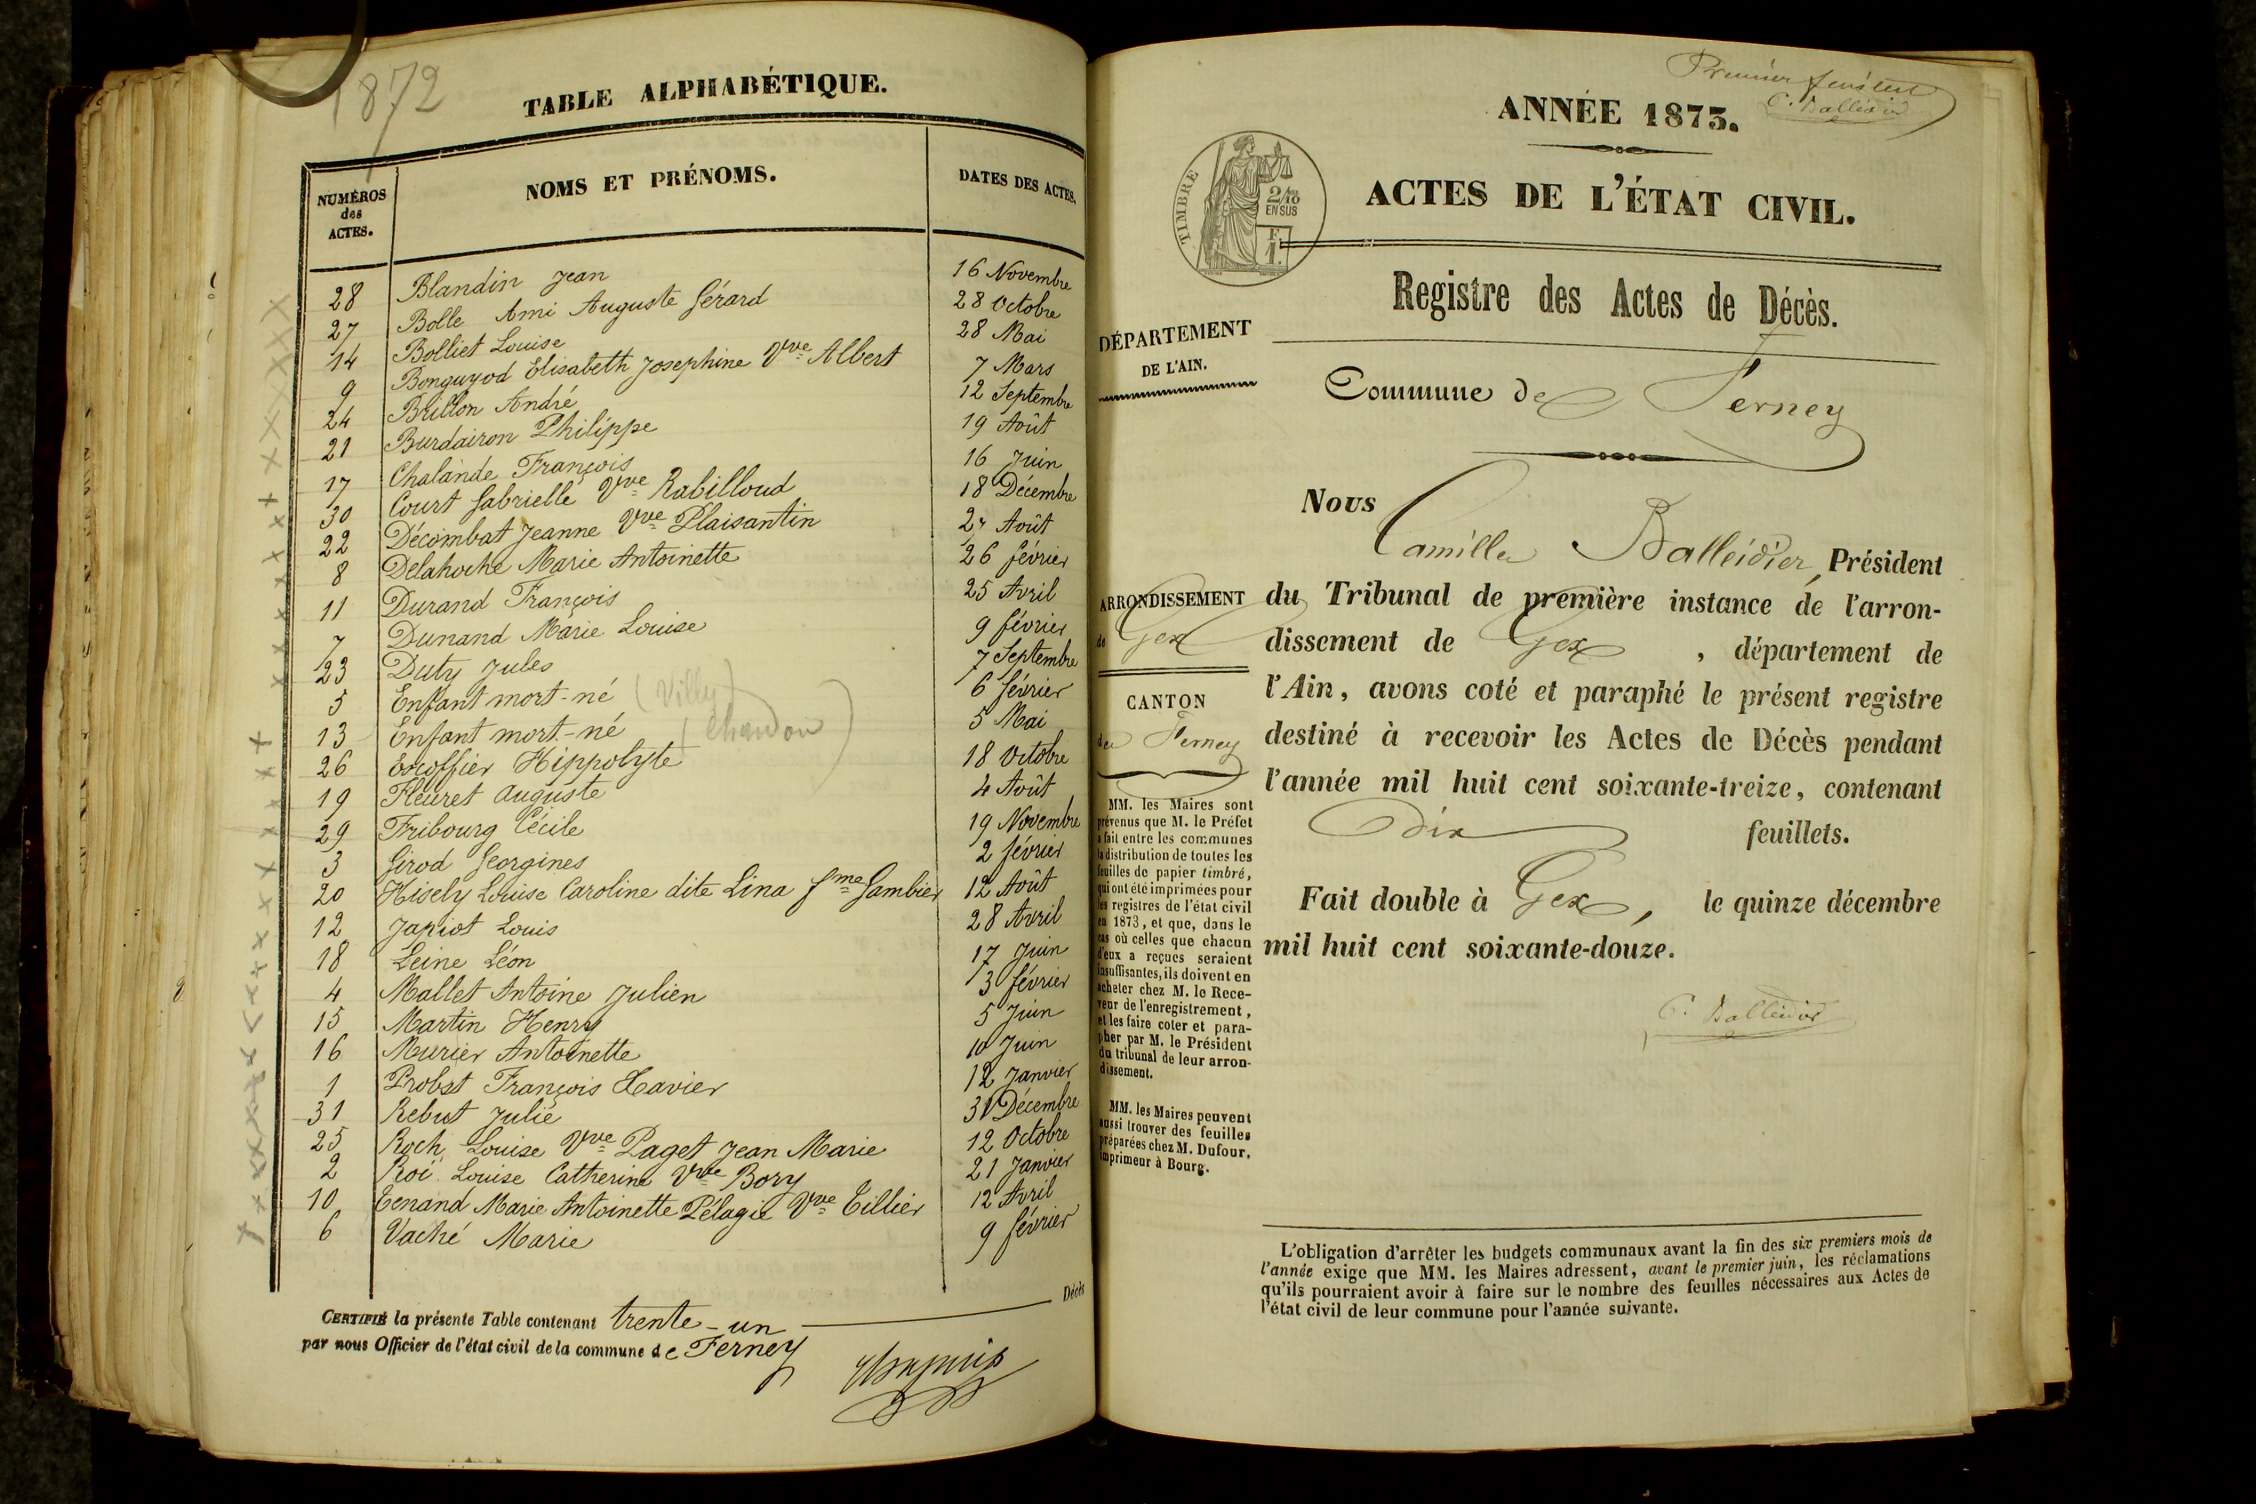 1872
TABLE ALPHABÉTIQUE.
NUMÉROS
des
ACTES.
NOMS ET PRÉNOMS.
DATES DES ACTES.
28 Blandin Jean 16 Novembre
27 Bolle Ami Auguste Gérard 28 Octobre
14 Bolliet Louise 28 Mai
9 Bonguyod Elisabeth Josephine Vve Albert 7 Mars
24 Brillon André 12 Septembre
21 Burdairon Philippe 19 Août
17 Chalande François 16 Juin
30 Court Gabrielle Vve Rabilloud 18 Décembre
22 Décombat Jeanne Vve Plaisantin 27 Août
8 Delahoche Marie Antoinette 26 février
11 Durand François 25 Avril
7 Dunand Marie Louise 9 février
23 Duty Jules 7 Septembre
5 Enfant mort-né (Villy) 6 février
13 Enfant mort-né (Chaudon) 5 Mai
26 Escoffier Hippolyte 18 Octobre
19 Fleuret Auguste 4 Août
29 Fribourg Cécile 19 Novembre
3 Girod Georgines 2 février
20 Hisely Louise Caroline dite Lina fme Gambier 12 Août
12 Japiot Louis 28 Avril
18 Leine Léon 17 Juin
4 Mallet Antoine Julien 3 février
15 Martin Henry 5 Juin
16 Murier Antoinette 10 Juin
1 Probst François Xavier 12 Janvier
31 Rebut Julie 31 Décembre
25 Roch Louise Vve Paget Jean Marie 12 Octobre
2 Roi Louise Catherine Vve Bory 21 Janvier
10 Tenand Marie Antoinette Pélagie Vve Tillier 12 Avril
6 Vaché Marie 9 février
CERTIFIÉ la présente Table contenant trente-un Décès
par nous Officier de l'état civil de la commune de Ferney
Premier feuillet
C. Balleidier
ANNÉE 1873.
TIMBRE
2/10
EN SUS
F.
1.
ACTES DE L'ÉTAT CIVIL.
Registre des Actes de Décès.
DÉPARTEMENT
DE L'AIN.
Commune de Ferney
Nous
Camille Balleidier, Président
du Tribunal de première instance de l'arron-
dissement de Gex, département de
l'Ain, avons coté et paraphé le présent registre
destiné à recevoir les Actes de Décès pendant
l'année mil huit cent soixante-treize, contenant
Dix feuillets.
Fait double à Gex, le quinze décembre
mil huit cent soixante-douze.
C. Balleidier
ARRONDISSEMENT
de Gex
CANTON
de Ferney
MM. les Maires sont
prévenus que M. le Préfet
a fait entre les communes
la distribution de toutes les
feuilles de papier timbré,
qui ont été imprimées pour
les registres de l'état civil
en 1873, et que, dans le
cas où celles que chacun
d'eux a reçues seraient
insuffisantes, ils doivent en
acheter chez M. le Rece-
veur de l'enregistrement,
et les faire coter et para-
pher par M. le Président
du tribunal de leur arron-
dissement.
MM. les Maires peuvent
aussi trouver des feuilles
préparées chez M. Dufour,
imprimeur à Bourg.
L'obligation d'arrêter les budgets communaux avant la fin des six premiers mois de
l'année exige que MM. les Maires adressent, avant le premier juin, les réclamations
qu'ils pourraient avoir à faire sur le nombre des feuilles nécessaires aux Actes de
l'état civil de leur commune pour l'année suivante.